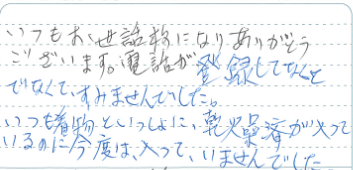 いつもお世話様になりありがとう
ございます。電話が登録してなくと
でなくて、すみませんでした。
いつも着物といっしょに、乾燥済が入って
いるのに今度は、入って、いませんでした